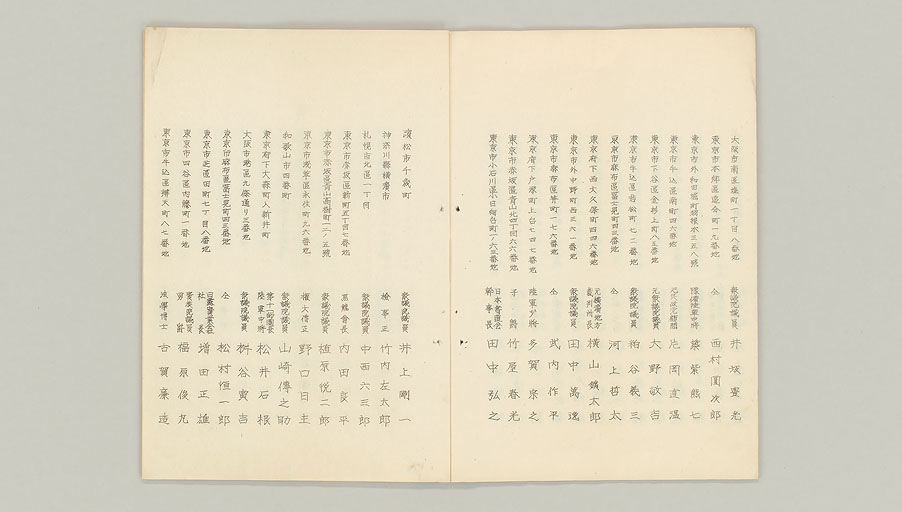 大阪市南區 町一丁目八番地 衆議院議員 井坂豊光
東京市本郷區 町一九番地 仝 西村圓次郎
東京 外和田堀町 三五八號 豫備陸軍中將 筑紫熊七
東京市牛込區南町四六番地 片岡直温
東京市下谷區金杉上町八五番地 元衆議院議員 大野敬吉
東京市牛込區若松町七二番地 衆議院議員 粕谷義三
東京市麻布區富士見町四三番地 仝 河上哲太
東京府下西大久保町四四六番地 元横濱地方裁判所長 横山鑛太郎
東京市外中野町西三六一番地 衆議院議員 田中萬逸
東京市麻布區 町一七六番地 仝 武内作平
東京府下戸塚町上 七四七番地 陸軍少將 多賀宗之
東京市赤坂區青山北四丁目六六番地 子爵 竹屋春光
東京市小石川區小日向台町一ノ六三番地 日本 會 幹事長 田中弘之
濱松市千歳町 衆議院議員 井上剛一
神奈川縣横濱市 檢事正 竹内左太郎
札幌市北區一丁目 衆議院議員 中西六三郎
東京市赤坂區新町五丁目七番地 黒龍會長 内田良平
東京市赤坂區青山高樹町一二ノ五號 衆議院議員 植原悦二郎
東京市淺草區永住町九六番地 權大僧正 野口日主
和歌山市四番町 衆議院議員 山崎傳之助
東京府下大森町八新井町 第十一師團長 陸軍中將 松井石根
大阪市港區九條通り三番地 衆議院議員 桝谷寅吉
東京市麻布區富士見町四三番地 仝 松村恒一郎
東京市芝區田町七丁目八番地 會社社長 増田正雄
東京市四谷區内藤町一番地 貴族院議員 男爵 福原俊丸
東京市牛込區辨天町八七番地 法學博士 古賀廉造